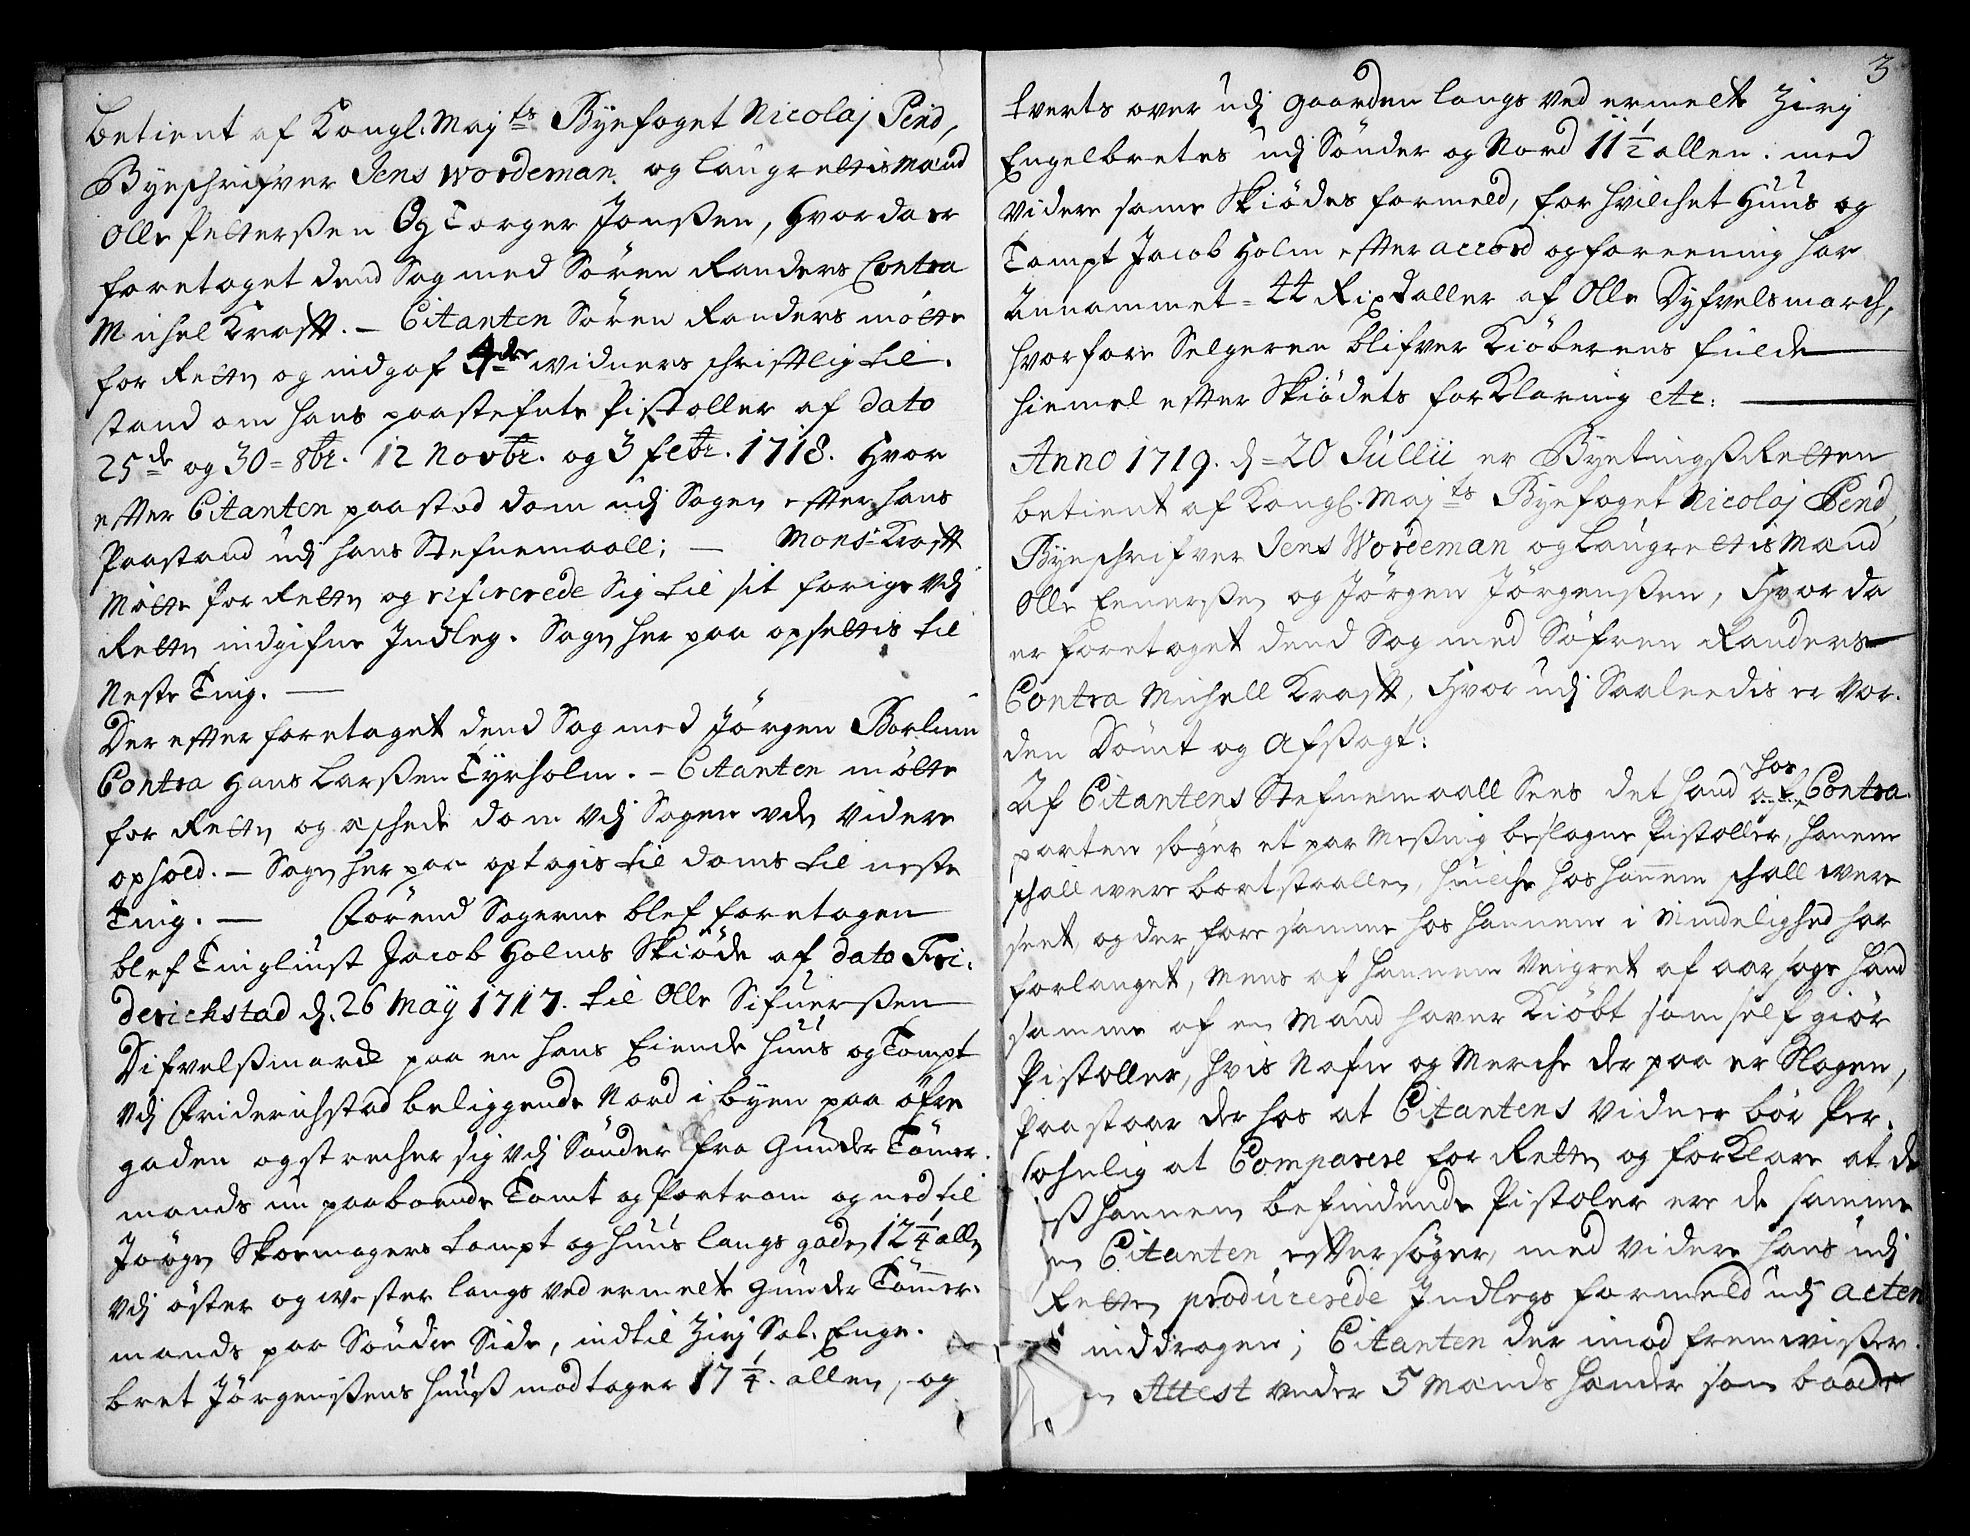 betient af Kongl. Maÿts Byefoget Nicolaj Pend,
Byeschrifver Jens Wordeman og laugrettis Mænd
Olle Pettersen Og Torger Jonßen, Hvorda er
foretaget dend Sag med Sören Randers Contra
Michel Krafft. – Citanten Sören Randers mötte
for Retten og indgaf 4de widners schrifftlig til-
stand om hans paastefnte Pistoller af dato
25de og 30 = 8br. 12 Novbr. og 3 febr. 1718. Hvor
effter Citanten paastod dom udj Sagen effter hans
Paastand udj hans Stefnemaall; – Mons: Krafft
Mötte for Retten og refererede Sig til sit forige Vdj
Retten indgifne Indleg. Sagen her paa opsettis til
Neste Ting. –
Der effter foretaget dend Sag med Jörgen Borlum
Contra Hans Larßen Tyrholm. – Citanten mötte
for Retten og æschede dom Vdj Sagen uden Videre
ophold. – Sagen her paa optagis til doms til neste
Ting. – Förend Sagerne blef foretagen
blef Tingliust Jacob Holms Skiöde af dato Fri-
derichstad d. 26 Maÿ 1717. til Olle Sifuerßen
Difvelßmarch paa en hans Eiende Huus og Tompt
Vdj Friderichstad beliggende Nord i byen paa öfre
gaden og strecher sig Vdj Sönder fra Gunder Tömer-
mands nu paaboende Tomt og Portrom og ned til
Joörgen Skoemagers tompt og Huus langs gaden 12 1/4 allen
Vdj öster og Wester langs ved ermelte Gunder Tömmer-
mands paa Söndre Side, indtil Zirj Sal. Enge-
bret Jörgenßens Huuß modtager 17 1/4. allen, og
3
tverts over udj gaarden langs ved ermelte Zirj
Engelbretes udj Sönder og Nord 11 1/2 allen. med
Videre same Skiödes formeld, for hvilchet Huus og
Tompt Jacob Holm effter accord og foreening har
Annammet = 44 Rixdaller af Olle Dyfvelsmarch,
hvorfore Selgeren blifver Kiöberens fulde
hiemel effter Skiödets forKlaring etc:
Anno 1719. d = 20 Jullii er Byetingß Retten
betient af Kongl. Majts Byefoget Nicolaj Pend,
Byeschrifver Jens Wordeman og Laugrettis Mænd
Olle Enerßen og Jörgen Jörgenßen, Hvorda
er foretaget dend Sag med Söfren Randers
Contra Michell Krafft, Hvor udj Saaleedis er vor-
den Dömt og Afsagt:
Af Citantens Stefnemaall Sees det hand hos af Contra
parten söger et par Meßing beslagne Pistoller, hannem
schall were bortstaallen, huilche hos hannem schall were
seet, og der fore samme hos hannem i Mindelighed har
forlanget, Mens af hannem Veigret af aarsage hand
samme af en Mand haver Kiöbt som self giör
Pistoller, hvis Nafn og Merche der paa er Slagen,
Paastaar der hos at Citantens Vidner bör Per-
sohnlig at Comparere for Retten og forKlare at de
hannem befindende Pistoler ere de samme
Citanten effter söger, med Videre hans udj
Retten producerede Indlegs formeld udj acten
inddragen; Citanten der imod fremwißer
Attest under 5 Mænds Hænder som baade